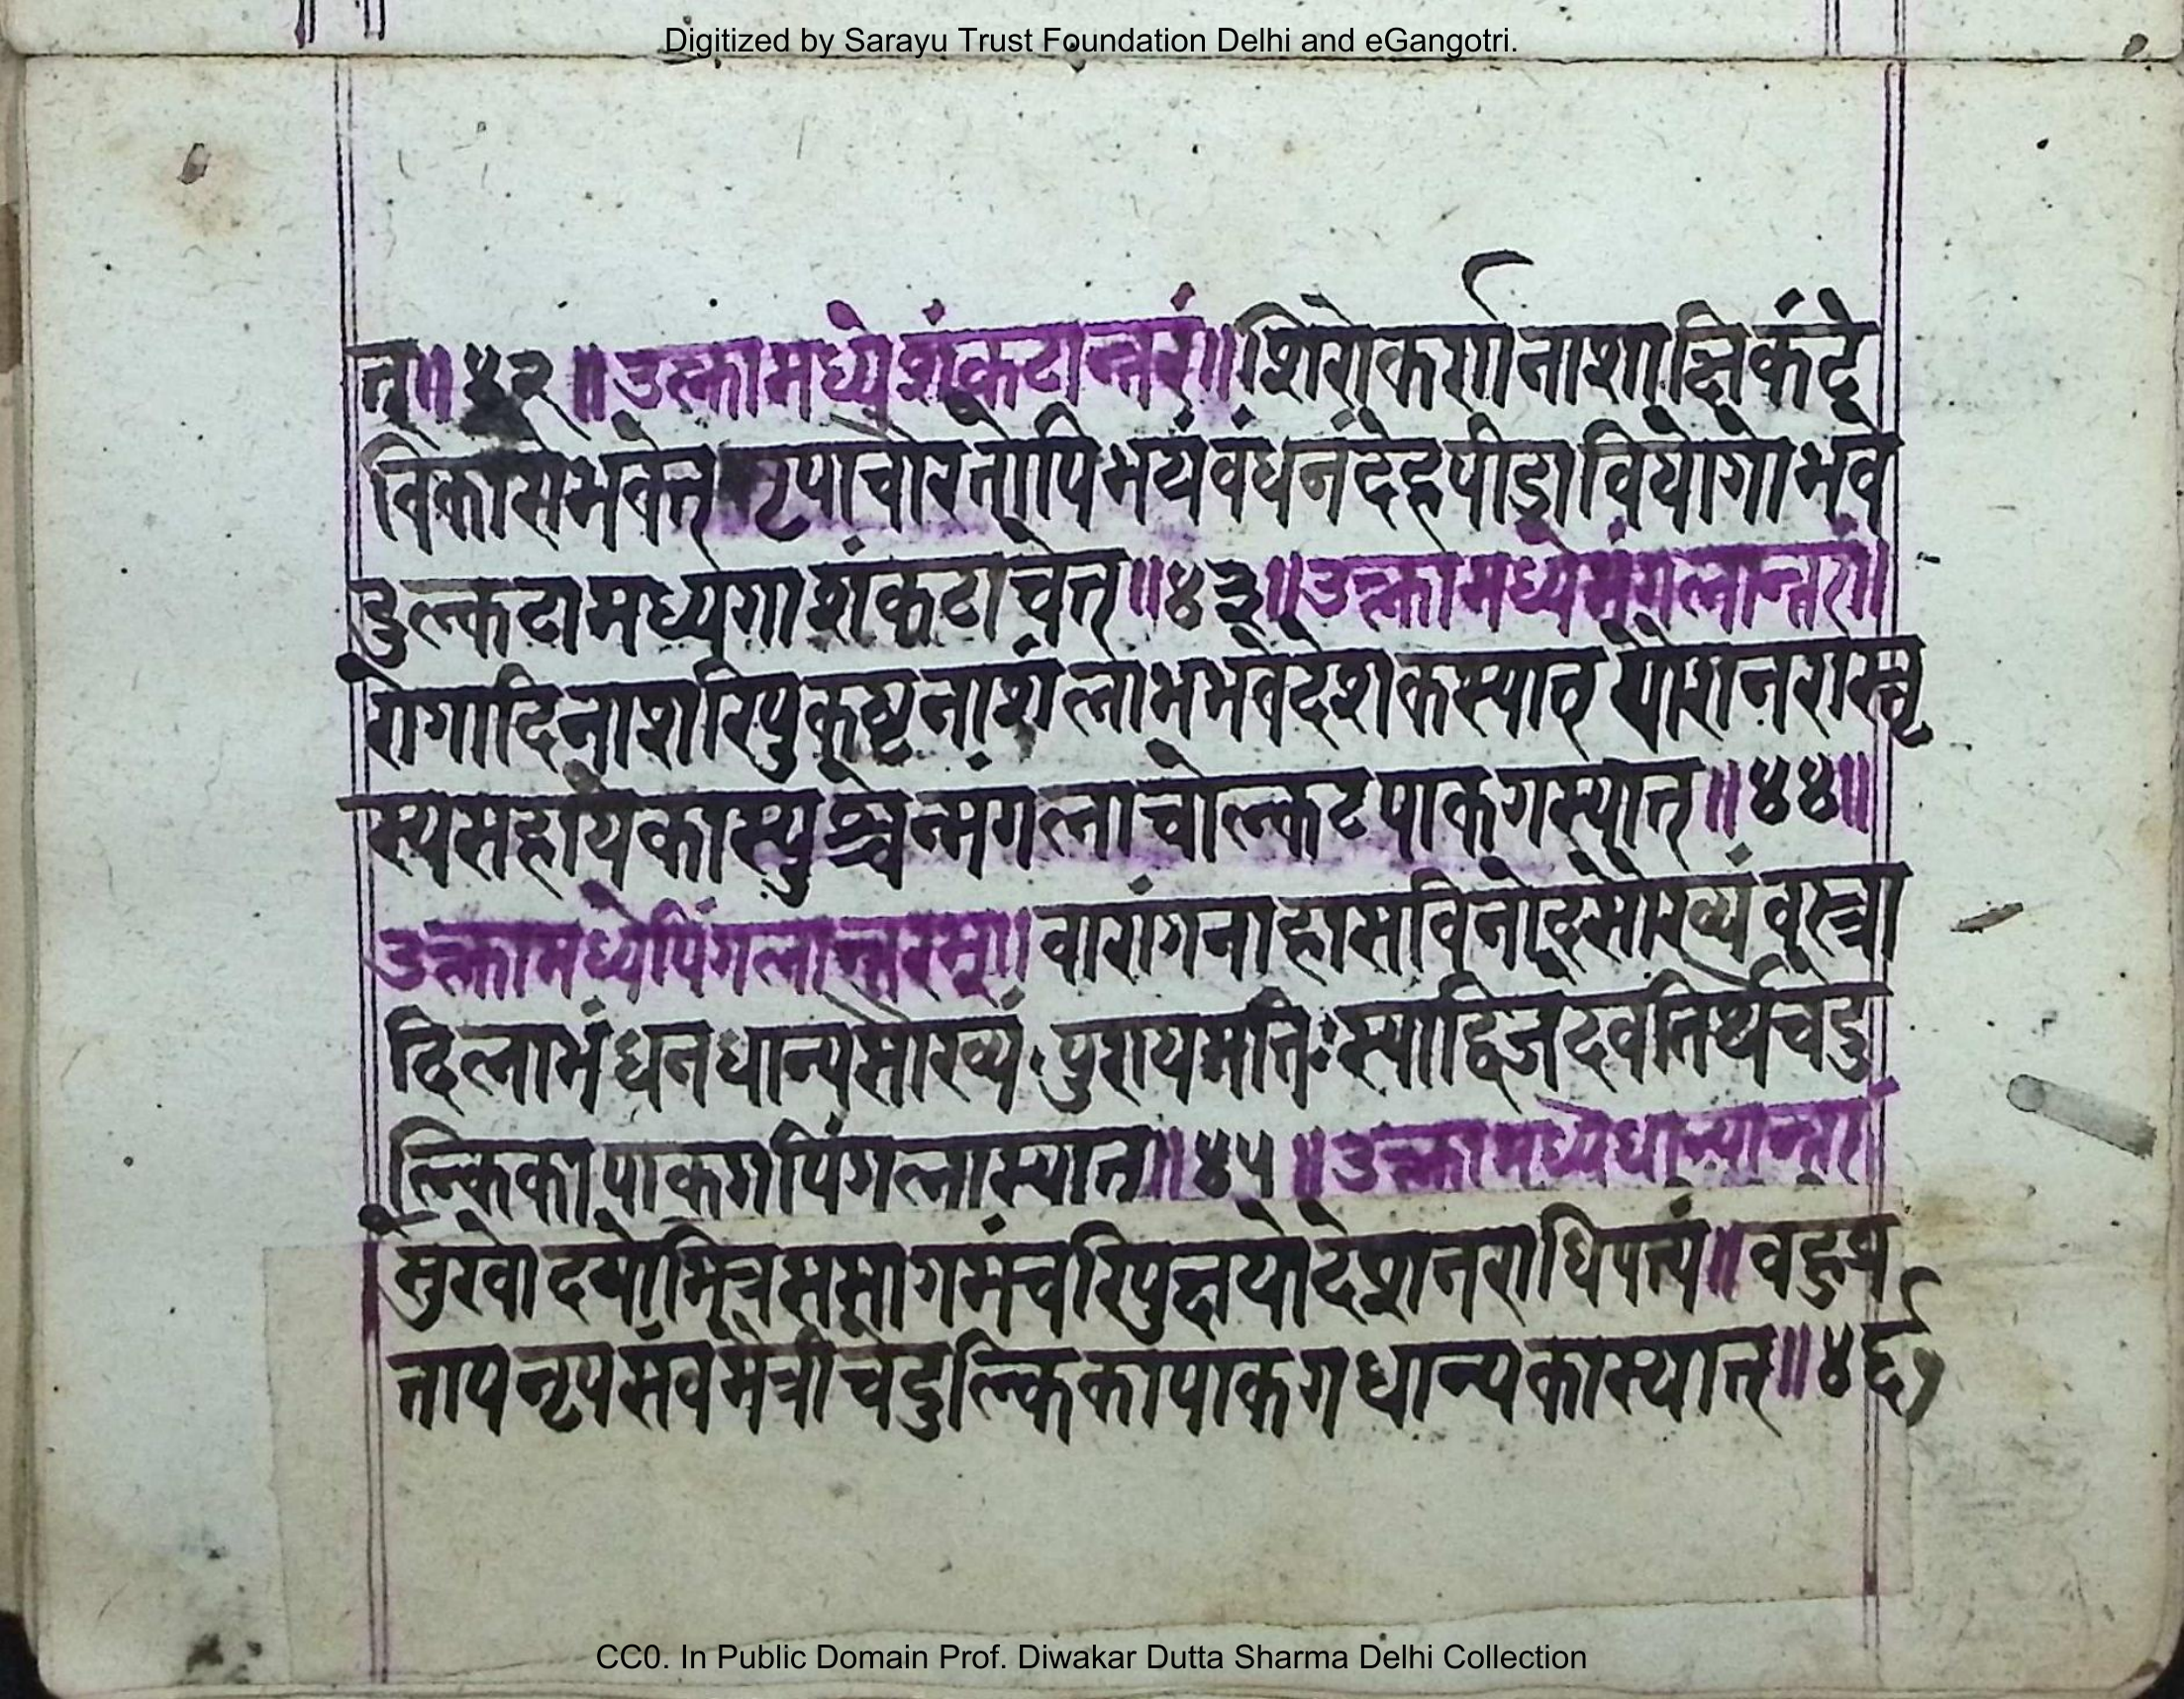 Digitized by Sarayu Trust Foundation Delhi and eGangotri.
त्॥४२॥उल्कामध्येशंकटान्तरं॥शिरोकर्णनाशाक्षिकंटे
विकासेभवेत् नृपाचोरतोपिभयंवंधनंदेहपीडावियोगोभवे
दुल्कटामध्यगाशंकटाचेत्॥४३॥उल्कामध्येमंगलान्तरं॥
रोगादिनाशरिपुकष्टनाशंलाभभवेदेशकस्याठ योशनरास्नृ
स्यसहायेकास्युश्चेन्मंगलाचोल्कटपाकगस्यात्॥४४॥
उल्कामध्येपिंगलान्तरम्॥वारांगनाहासविनोदसौख्यंवस्त्रा
दिलाभंधनधान्यसौख्यं पुरायमतिःस्याद्विजदेवतिर्थेचेदु
ल्किकापाकगपिंगलास्यात्॥४५॥उल्कामध्येधान्यान्तरं
सुखोदयोमित्रसमागमंचरिपुक्षयोदेशनराधिपत्यं॥वहुप्र
तापनृपसंवमैत्रीचेदुल्किकापाकगधान्यकास्यात्॥४६
CC0. In Public Domain Prof. Diwakar Dutta Sharma Delhi Collection